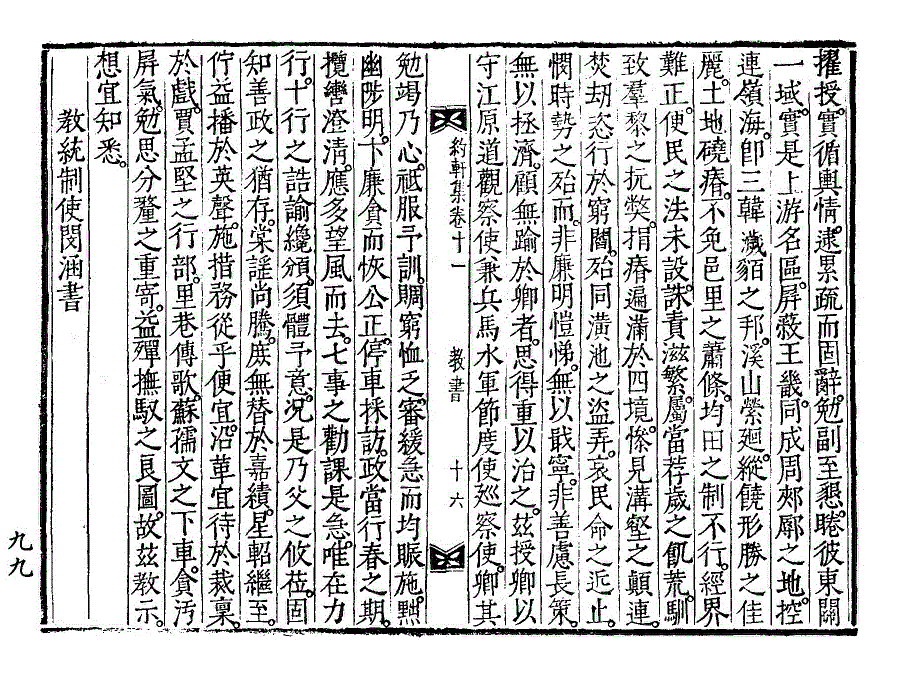 擢授。實循輿情。逮累疏而固辭。勉副至懇。睠彼東關
一域。實是上游名區。屛蔽王畿。同成周郟鄏之地。控
連嶺海。卽三韓濊貊之邦。溪山縈廻。縱饒形勝之佳
麗。土地磽瘠。不免邑里之蕭條。均田之制不行。經界
難正。便民之法未設。誅責滋繁。屬當荐歲之飢荒。馴
致羣黎之抏獘。捐瘠遍滿於四境。慘見溝壑之顚連。
焚劫恣行於窮閭。殆同潢池之盜弄。哀民命之近止。
憫時勢之殆而。非廉明愷悌。無以戢寧。非善慮長策。
無以拯濟。顧無踰於卿者。思得重以治之。玆授卿以
守江原道觀察使兼兵馬水軍節度使巡察使。卿其
約軒集卷十一 敎書 十六
勉竭乃心。祗服予訓。賙窮恤乏。審緩急而均賑施。黜
幽陟明。卞廉貪而恢公正。停車採訪。政當行春之期。
攬轡澄淸。應多望風而去。七事之勸課是急。唯在力
行。十行之誥諭纔頒。須體予意。况是乃父之攸莅。固
知善政之猶存。棠謠尙騰。庶無替於嘉績。星軺繼至。
佇益播於英聲。施措務從乎便宜。沿革宜待於裁稟。
於戲。賈孟堅之行部。里巷傳歌。蘇孺文之下車。貪汚
屛氣。勉思分釐之重寄。益殫撫馭之良圖。故玆敎示。
想宜知悉。
敎統制使閔涵書
九九